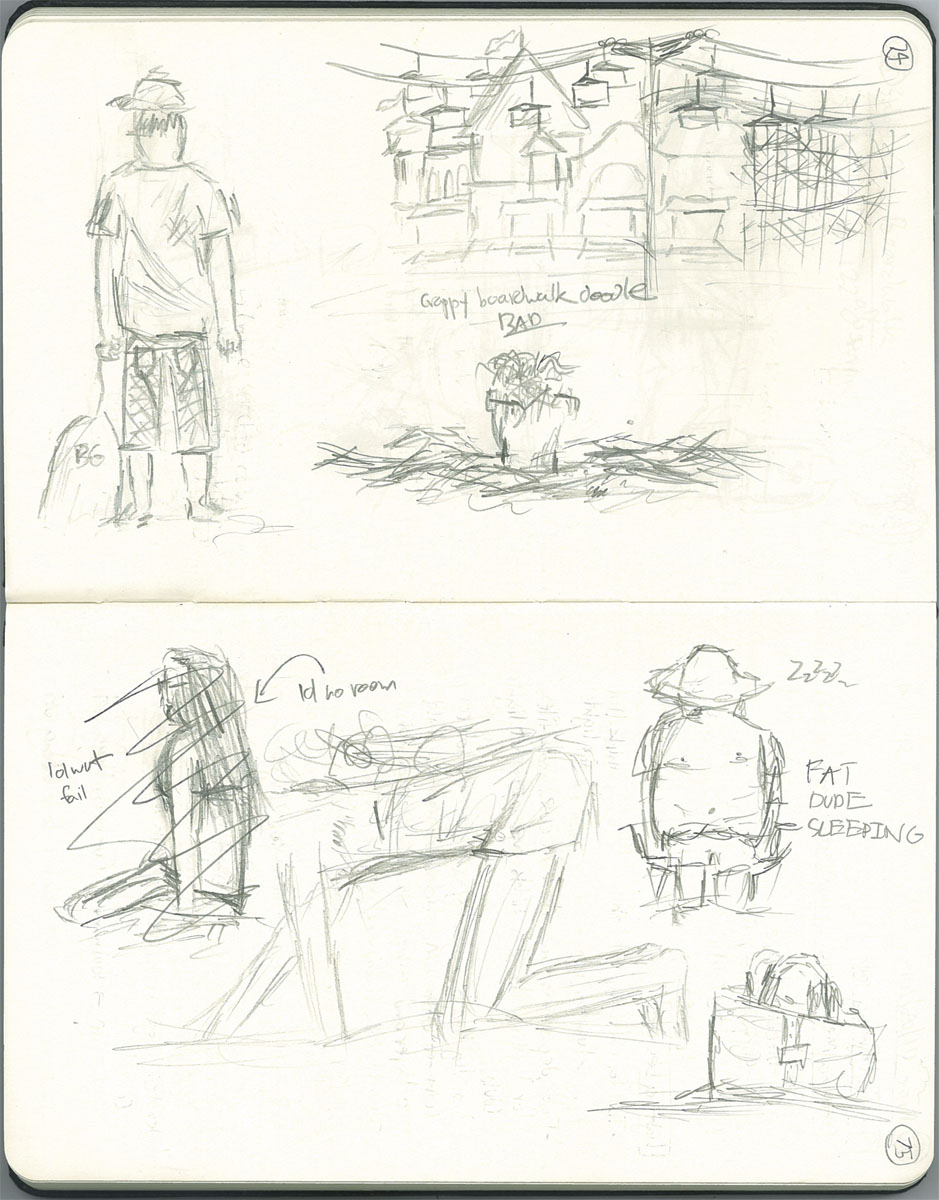 74
Crappy boardwalk doodle
BAD
BG
Id no room
Idwut
fail
ZZZZ
FAT
DUDE
SLEEPING
75